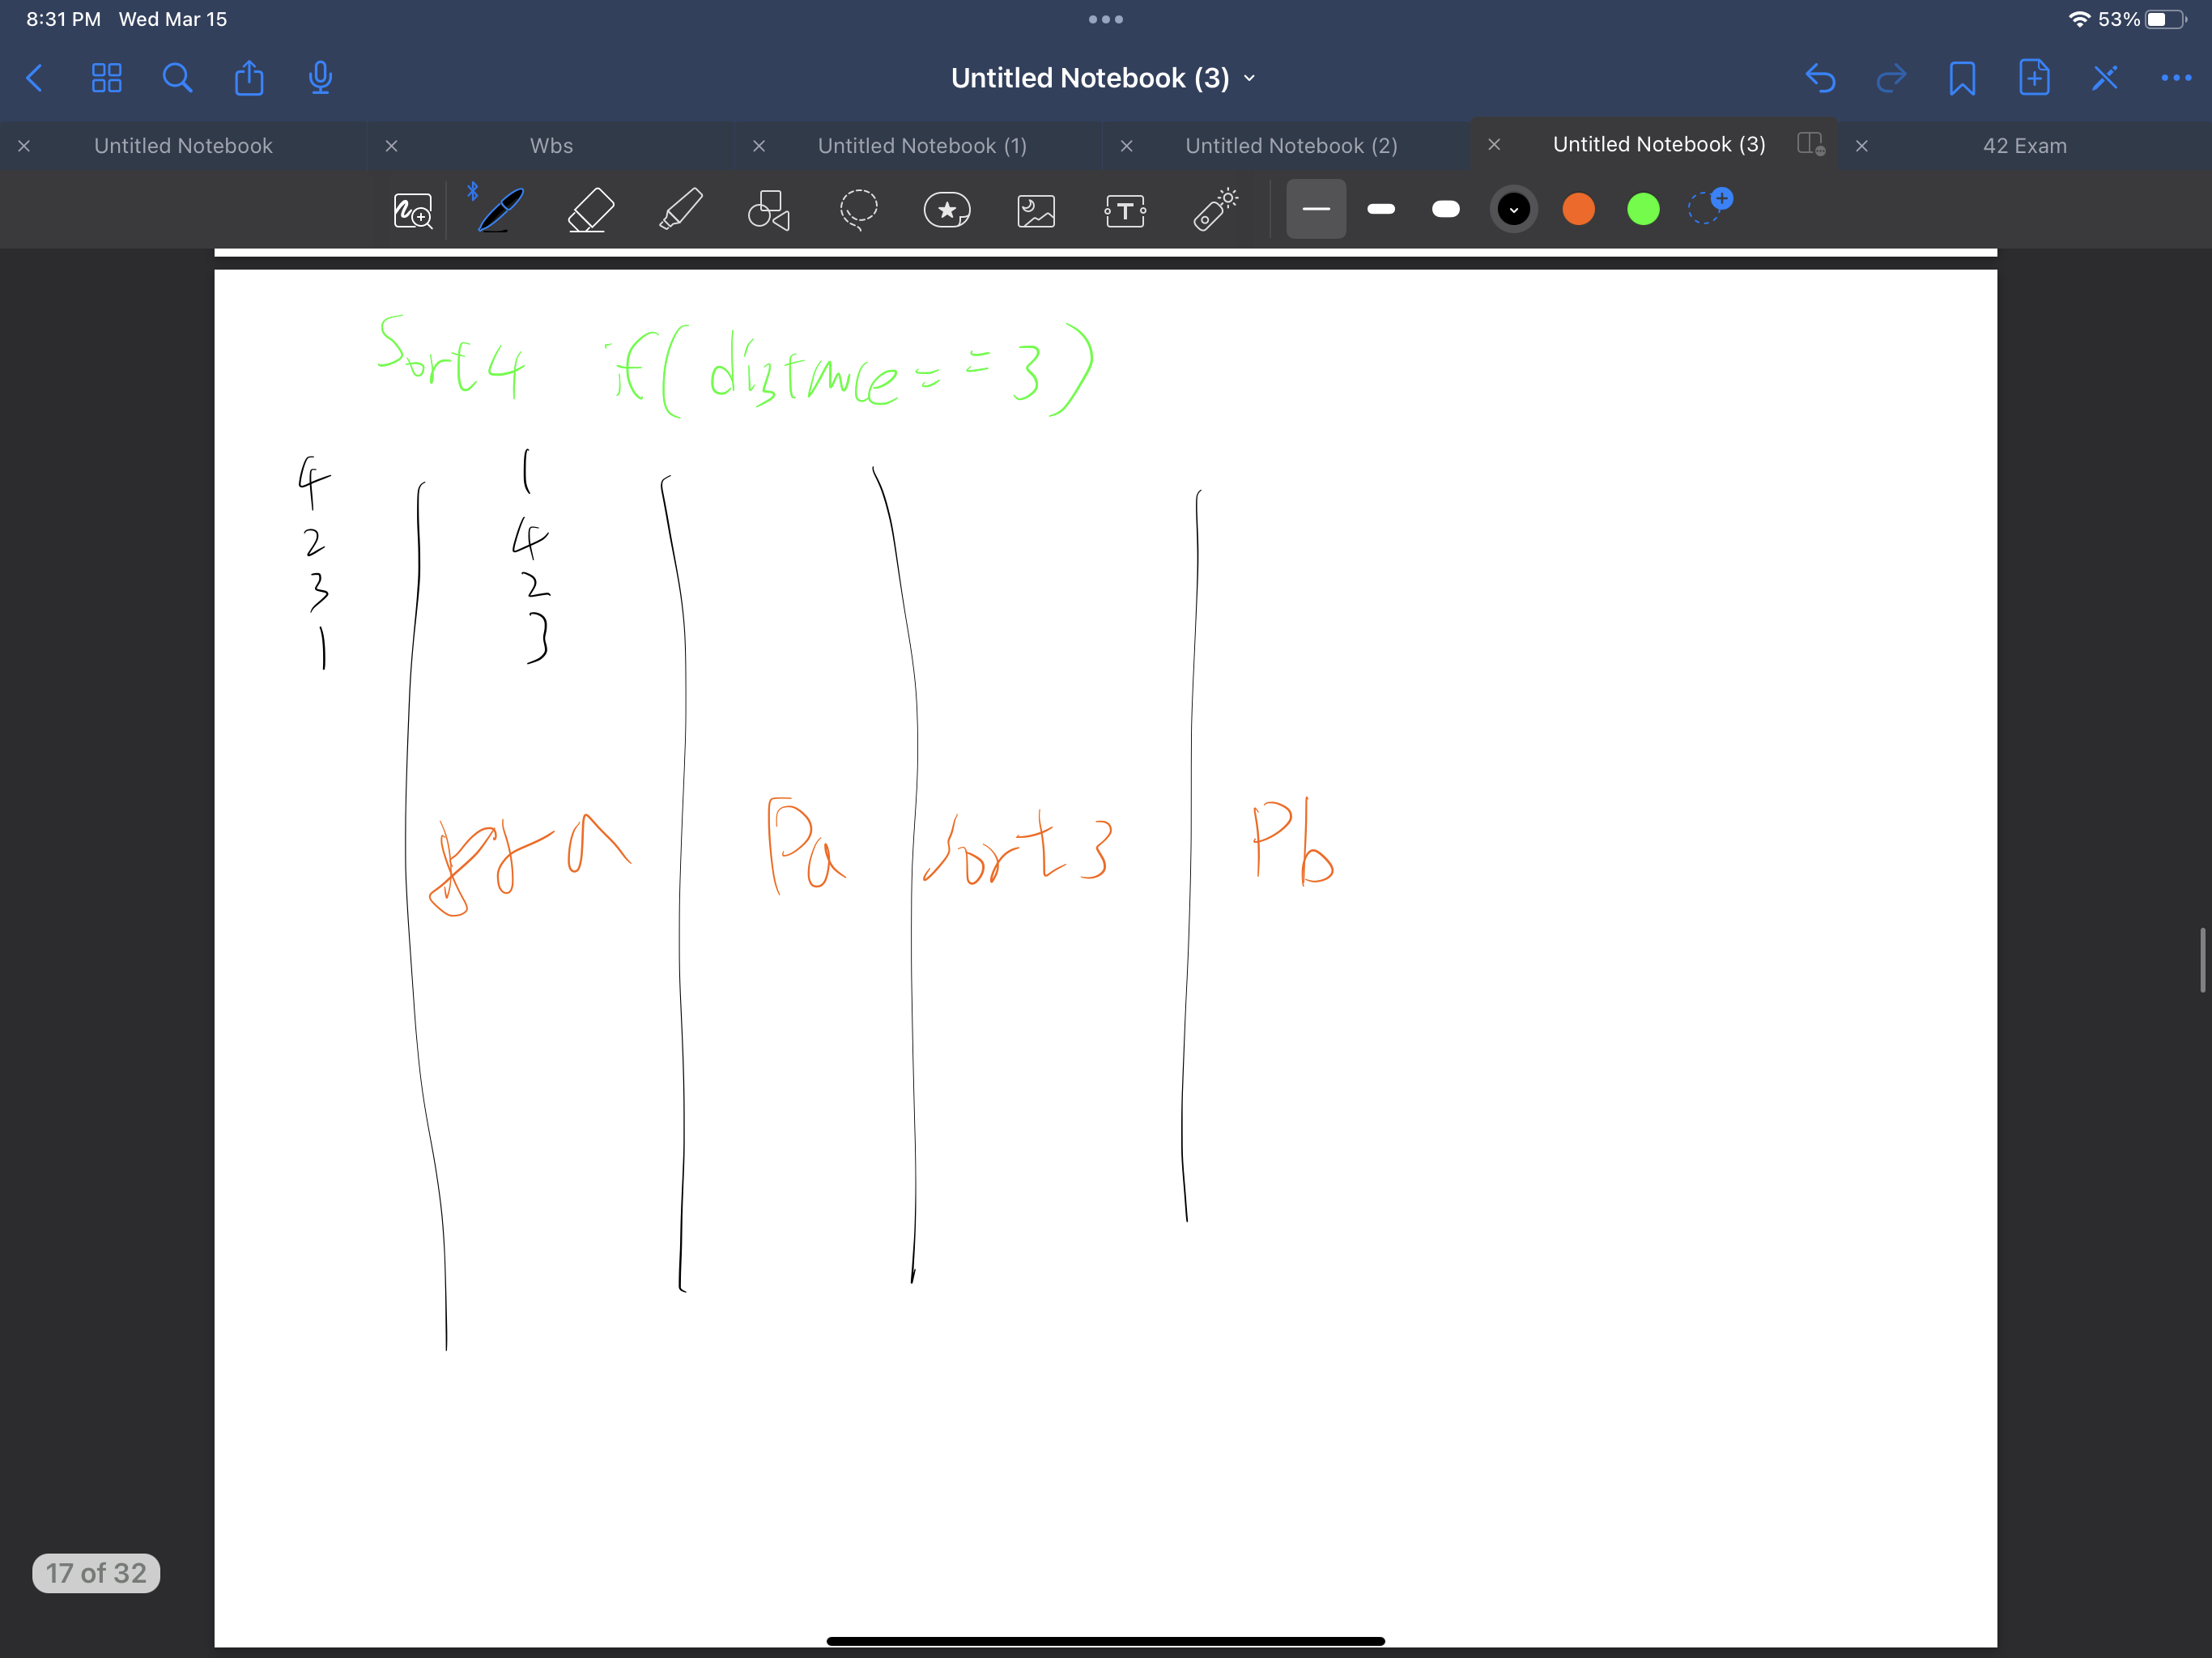 8:31 PM Wed Mar 15
53%
Untitled Notebook (3)
Untitled Notebook
Wbs
Untitled Notebook (1)
Untitled Notebook (2)
Untitled Notebook (3)
42 Exam
T
Sort 4 if(distance==3)
4
2
3
1
1
4
2
3
Pa
sort 3
Pb
17 of 32